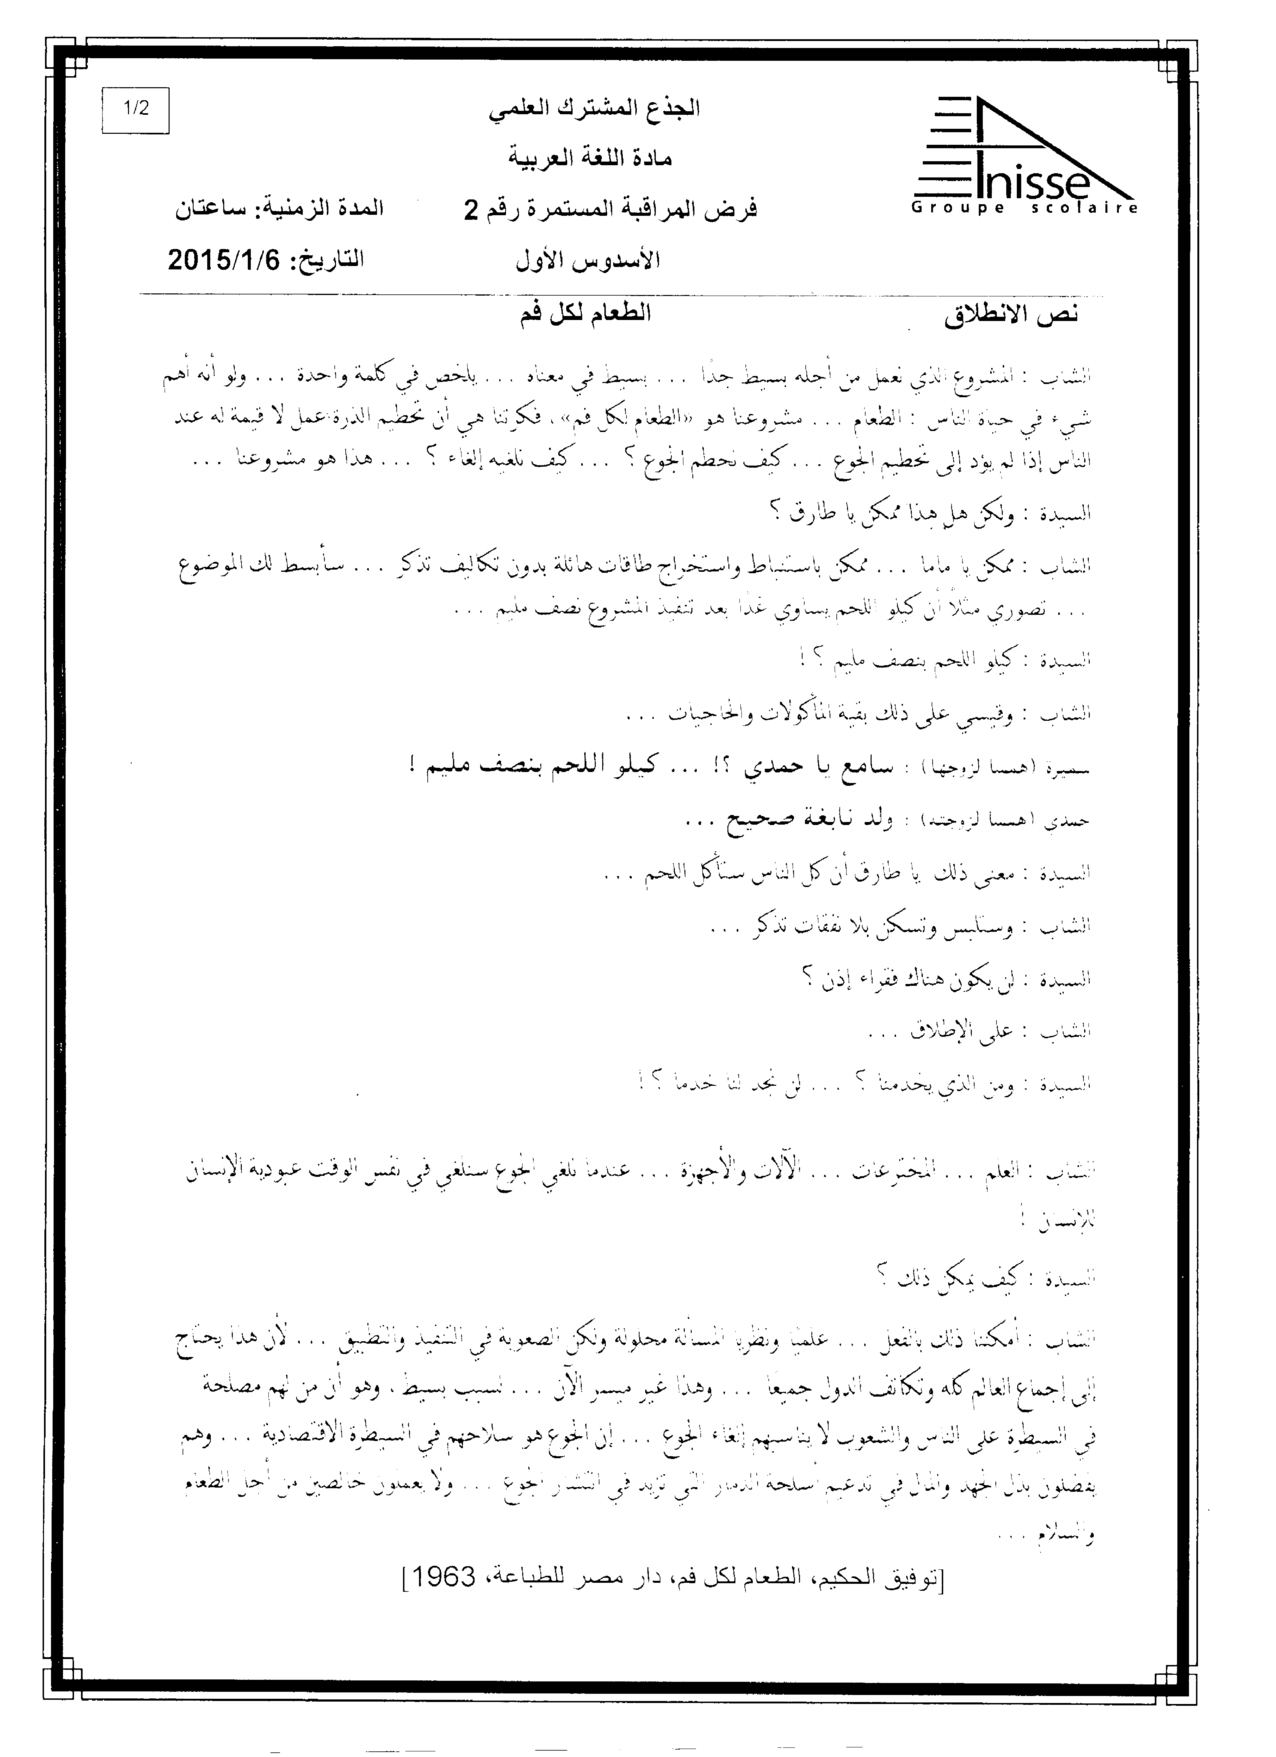 1/2
الجذع المشترك العلمي
مادة اللغة العربية
فرض المراقبة المستمرة رقم 2
المدة الزمنية: ساعتان
الأسدوس الأول
التاريخ: 2015/1/6
Anisse
Groupe scolaire
نص الانطلاق
الطعام لكل فم
الشاب : المشروع الذي نعمل من أجله بسيط جدًا ... بسيط في معناه ... يلخص في كلمة واحدة ... ولو أنه أهم
شيء في حياة الناس : الطعام ... مشروعنا هو «الطعام لكل فم»، فكرتنا هي أن تحطيم الذرة عمل لا قيمة له عند
الناس إذا لم يؤد إلى تحطيم الجوع ... كيف نحطم الجوع ؟ ... كيف نلغيه إلغاء ؟ ... هذا هو مشروعنا ...
السيدة : ولكن هل هذا ممكن يا طارق ؟
الشاب : ممكن يا ماما ... ممكن باستنباط واستخراج طاقات هائلة بدون تكاليف تذكر ... سأبسط لك الموضوع
... تصوري مثلاً أن كيلو اللحم يساوي غدًا بعد تنفيذ المشروع نصف مليم ...
السيدة : كيلو اللحم بنصف مليم ؟ !
الشاب : وقيسي على ذلك بقية المأكولات والحاجيات ...
سميرة (همسا لزوجها) : سامع يا حمدي ؟! ... كيلو اللحم بنصف مليم !
حمدي (همسا لزوجته) : ولد نابغة صحيح ...
السيدة : معنى ذلك يا طارق أن كل الناس ستأكل اللحم ...
الشاب : وستلبس وتسكن بلا نفقات تذكر ...
السيدة : لن يكون هناك فقراء إذن ؟
الشاب : على الإطلاق ...
السيدة : ومن الذي يخدمنا ؟ ... لن نجد لنا خدما ؟ !
الشاب : العلم ... المخترعات ... الآلات والأجهزة ... عندما نلغي الجوع سنلغي في نفس الوقت عبودية الإنسان
للإنسان !
السيدة : كيف يمكن ذلك ؟
الشاب : أمكننا ذلك بالفعل ... علميًا ونظريا المسألة محلولة ولكن الصعوبة في التنفيذ والتطبيق ... لأن هذا يحتاج
إلى إجماع العالم كله وتكاتف الدول جميعًا ... وهذا غير ميسر الآن ... لسبب بسيط، وهو أن من لهم مصلحة
في السيطرة على الناس والشعوب لا يناسبهم إلغاء الجوع ... إن الجوع هو سلاحهم في السيطرة الاقتصادية ... وهم
يفضلون بذل الجهد والمال في تدعيم أسلحة الدمار التي تزيد في انتشار الجوع ... ولا يعملون خالصين من أجل الطعام
والسلام ...
[توفيق الحكيم، الطعام لكل فم، دار مصر للطباعة، 1963]